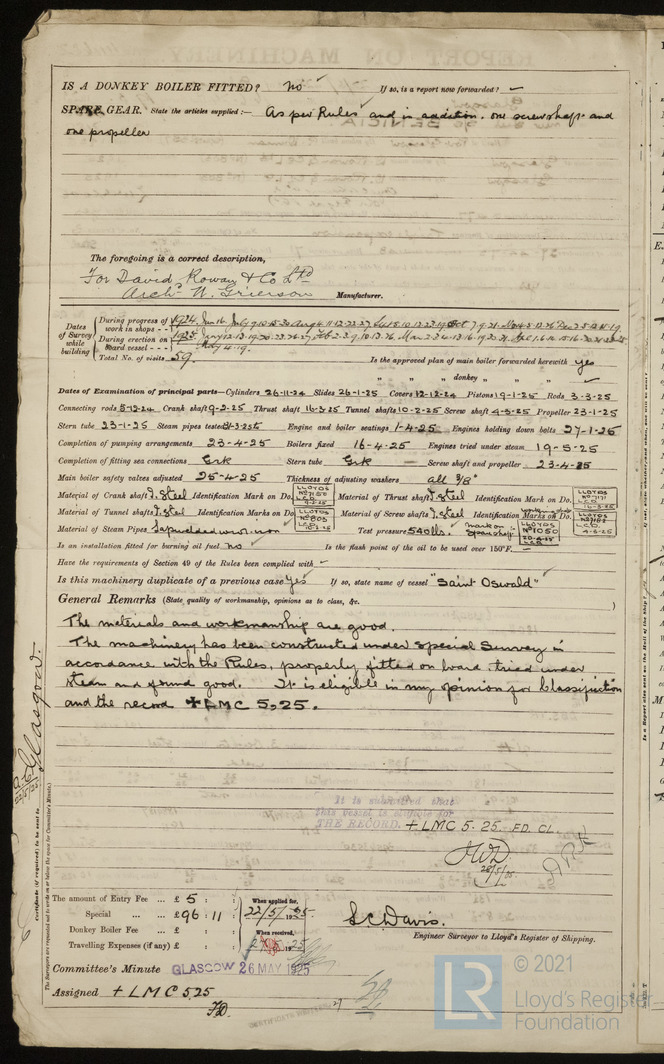 IS A DONKEY BOILER FITTED? No If so, is a report now forwarded? –
SPARE GEAR. State the articles supplied:— As per Rules and in addition. one screwshaft and
one propeller
The foregoing is a correct description,
For David Rowan & Co Ltd
Archd W. Grierson Manufacturer.
Dates of Survey while building
During progress of work in shops - - 1924.
During erection on board vessel - - - 1925.
May 4. 19.
Total No. of visits 59.
Is the approved plan of main boiler forwarded herewith yes
" " " donkey " "
Dates of Examination of principal parts—Cylinders 26-11-24 Slides 26-1-25 Covers 12-12-24 Pistons 19-1-25 Rods 3-3-25
Connecting rods 5-12-24 Crank shaft 9-2-25 Thrust shaft 16-3-25 Tunnel shafts 10-2-25 Screw shaft 4-5-25 Propeller 23-1-25
Stern tube 23-1-25 Steam pipes tested Engine and boiler seatings 1-4-25 Engines holding down bolts 27-1-25
Completion of pumping arrangements 23-4-25 Boilers fixed 16-4-25 Engines tried under steam 19-5-25
Completion of fitting sea connections Grk Stern tube Grk Screw shaft and propeller 23-4-25
Main boiler safety valves adjusted 25-4-25 Thickness of adjusting washers all 3/8"
Material of Crank shaft I. Steel Identification Mark on Do. LLOYDS Material of Thrust shaft I. Steel Identification Mark on Do. LLOYDS
Material of Tunnel shafts I. Steel Identification Marks on Do. LLOYDS Material of Screw shafts I. Steel Identification Marks on Do. LLOYDS
Material of Steam Pipes Lapwelded wrot iron Test pressure 540 lbs. mark on spare shaft LLOYDS
Is an installation fitted for burning oil fuel no Is the flash point of the oil to be used over 150°F. –
Have the requirements of Section 49 of the Rules been complied with –
Is this machinery duplicate of a previous case yes If so, state name of vessel "Saint Oswald"
General Remarks (State quality of workmanship, opinions as to class, &c.
The materials and workmanship are good.
The machinery has been constructed under Special Survey in
accordance with the Rules, properly fitted on board, tried under
steam and found good. It is eligible in my opinion for Classification
and the record + LMC 5,25.
It is submitted that
this vessel is eligible for
THE RECORD. + LMC 5. 25. FD. CL.
Glasgow.
Certificate (if required) to be sent to
(The Surveyors are requested not to write on or below the space for Committee's Minute.)
The amount of Entry Fee ... £ 5 : :
Special ... £ 96 : 11 :
Donkey Boiler Fee ... £ : :
Travelling Expenses (if any) £ : :
When applied for,
22/5/1925
When received,
S. C. Davis.
Engineer Surveyor to Lloyd's Register of Shipping.
Committee's Minute GLASGOW 26 MAY 1925
Assigned + LMC 5,25
FD.
LR
© 2021
Lloyd's Register
Foundation